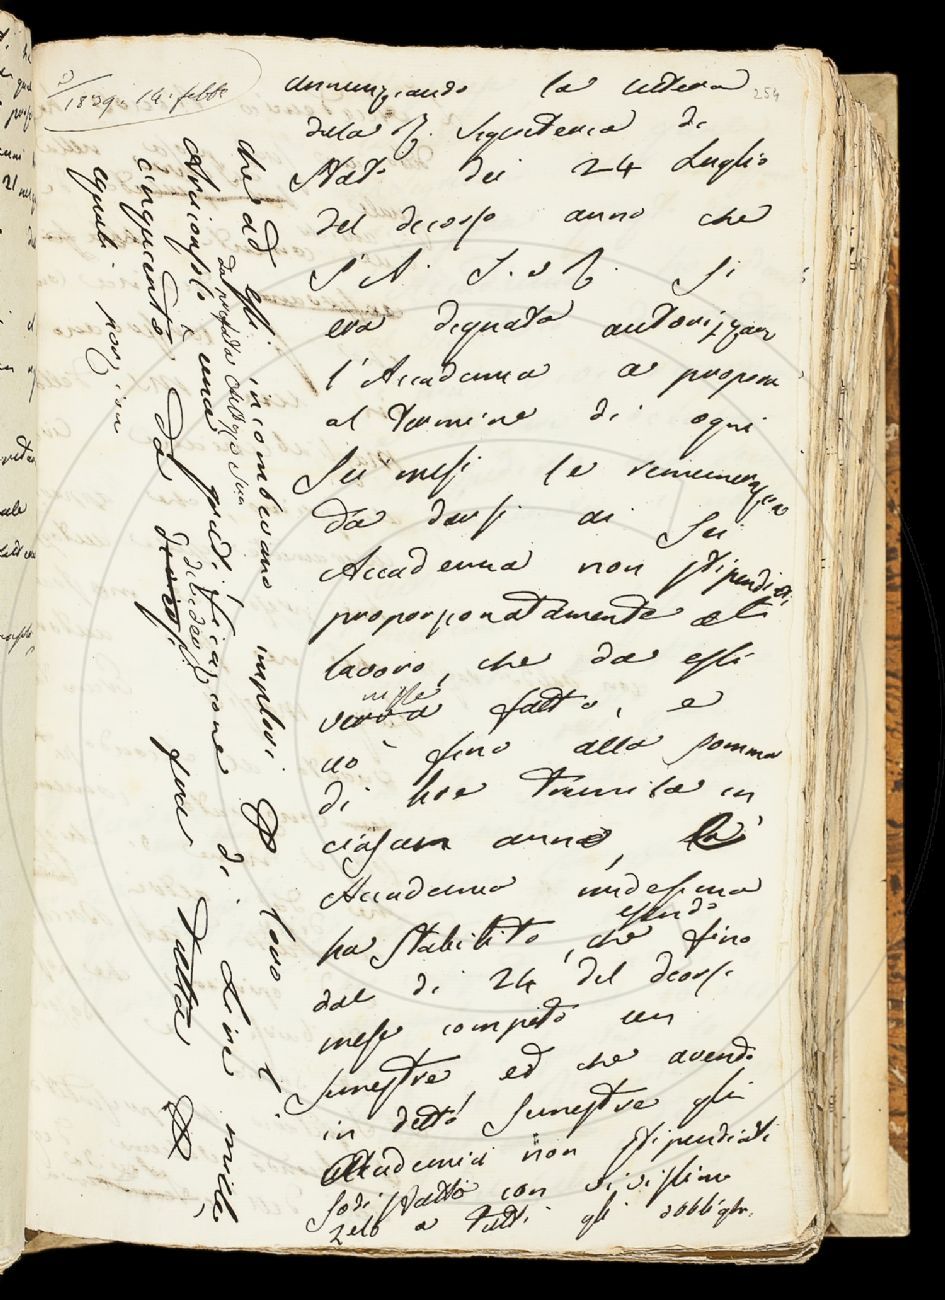 1829. 14. febb
254
annunziando la lettera
della R. Segreteria di
Stato dei 24 Luglio
del decorso anno che
S. A. I. e R. si
era degnata autorizzare
l'Accademia a proporre
al termine di ogni
sei mesi le remunerazioni
da darsi ai sei
Accademici non stipendiati
proporzionatamente al
lavoro, che da essi
fatto, e
ciò fino alla somma
di lire tremila in
ciascun anno, la
Accademia medesima
ha stabilito, che essendo fino
dal dì 24 del decorso
mese compito un
semestre, ed che avendo
in detto semestre gli
Accademici non stipendiati
sodisfatto con vivissimo
zelo a tutti gli obblighi
che ad essi incombevano implori per loro
dalla prefata Altezza Sua
una gratificazione di Lire mille
cinquecento da dividersi fra tutti
eguali porzioni